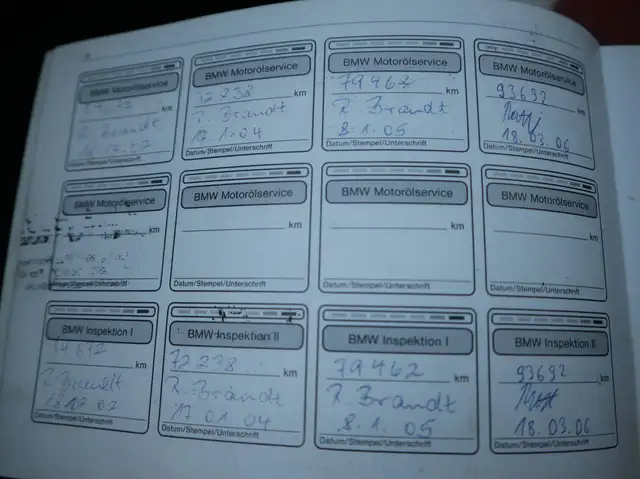 BMW Motorölservice
km
R. Brandt
Datum/Stempel/Unterschrift
BMW Motorölservice
72238 km
R. Brandt
17.1.04
Datum/Stempel/Unterschrift
BMW Motorölservice
79462 km
R. Brandt
8.1.05
Datum/Stempel/Unterschrift
BMW Motorölservice
93692 km
18.03.06
Datum/Stempel/Unterschrift
BMW Motorölservice
km
Datum/Stempel/Unterschrift
BMW Motorölservice
km
Datum/Stempel/Unterschrift
BMW Motorölservice
km
Datum/Stempel/Unterschrift
BMW Motorölservice
km
Datum/Stempel/Unterschrift
BMW Inspektion I
km
R. Brandt
Datum/Stempel/Unterschrift
BMW Inspektion II
72238 km
R. Brandt
17 01 04
Datum/Stempel/Unterschrift
BMW Inspektion I
79462 km
R. Brandt
8.1.05
Datum/Stempel/Unterschrift
BMW Inspektion II
93692 km
18.03.06
Datum/Stempel/Unterschrift